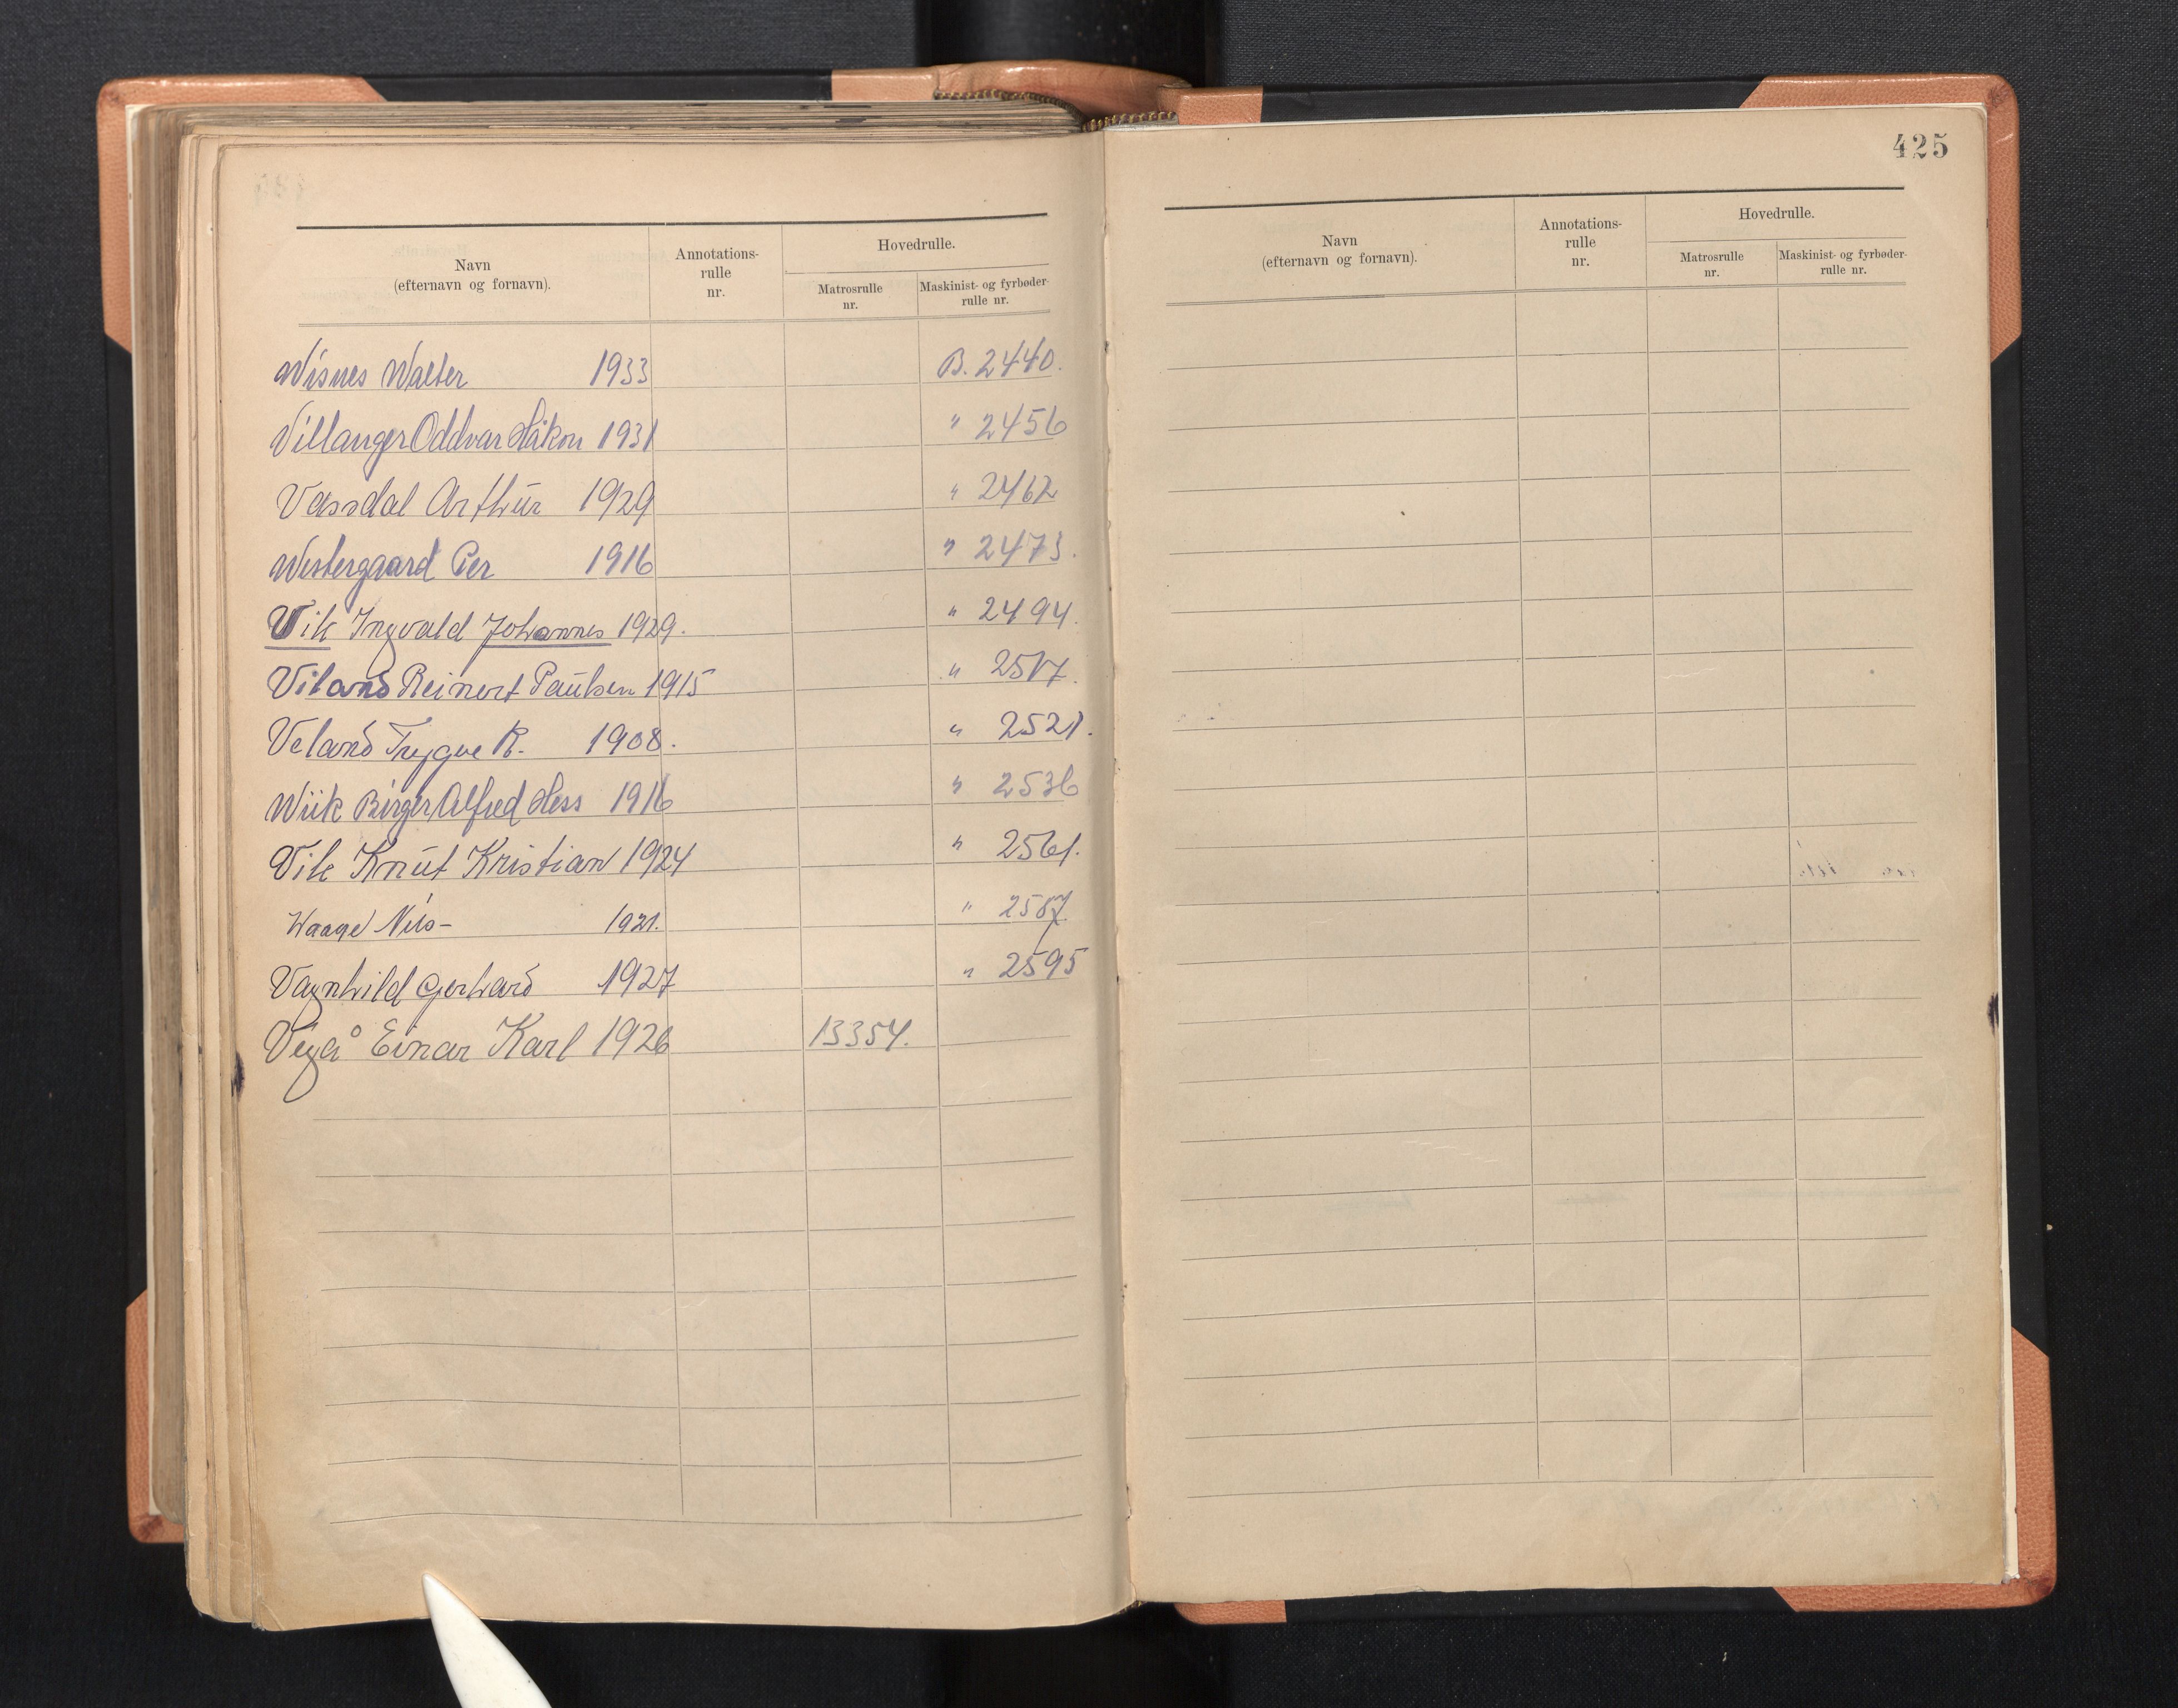 Navn
(efternavn og fornavn).
Annotations-
rulle
nr.
Hovedrulle.
Matrosrulle
nr.
Maskinist- og fyrbøder-
rulle nr.
Wisnes Walter 1933 B. 2440.
Villanger Oddvar Håkon 1931 " 2456
Vassdal Arthur 1929 " 2462
Westergaard Per 1916 " 2473.
Vik Ingvald Johannes 1929. " 2494.
Viland Reinert Paulsen 1915 " 2517.
Veland Trygve R. 1908. " 2521.
Wiik Birger Alfred Hess 1916 " 2536
Vik Knut Kristian 1924 " 2561.
Waage Nils- 1921. " 2587
Vagnhild Gerhard 1927 " 2595
Vegå Einar Karl 1926 13354.
425
Navn
(efternavn og fornavn).
Annotations-
rulle
nr.
Hovedrulle.
Matrosrulle
nr.
Maskinist- og fyrbøder-
rulle nr.